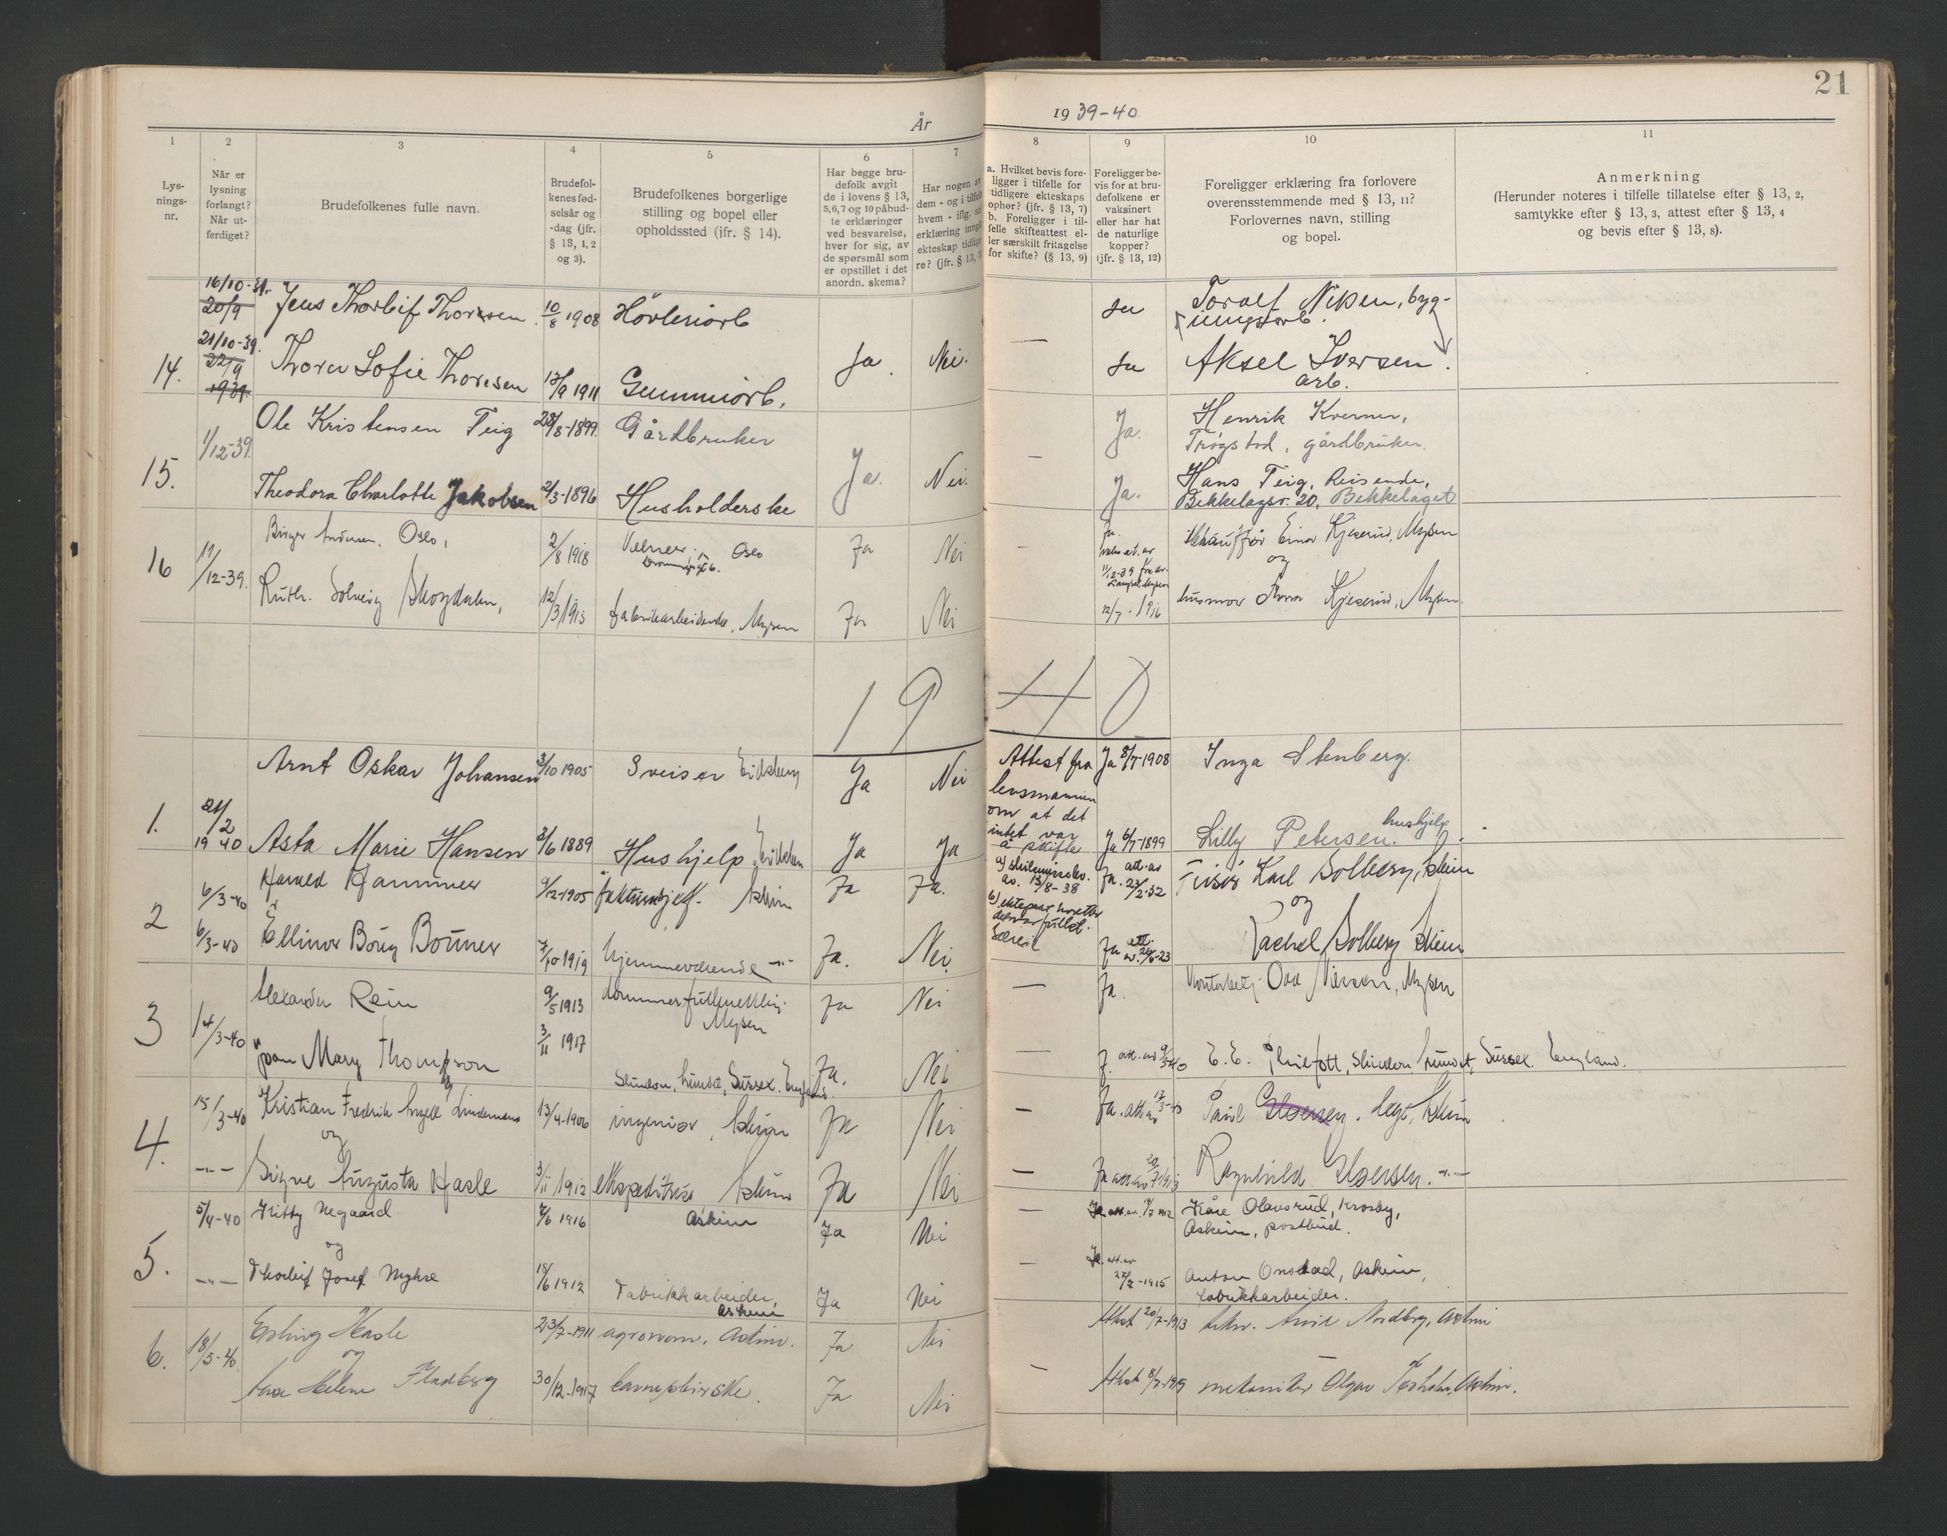 21
År 1939-40
1
2
3
4
5
6
7
8
9
10
11
Lys-
nings-
nr.
Når er
lysning
forlangt?
Når ut-
ferdiget?
Brudefolkenes fulle navn.
Brudefol-
kenes fød-
selsår og
-dag (jfr.
§ 13, 1, 2
og 3).
Brudefolkenes borgerlige
stilling og bopel eller
opholdssted (ifr. § 14).
Har begge bru-
defolk avgit
de i lovens § 13,
5,6,7 og 10 påbud-
te erklæringer
ved besvarelse,
hver for sig, av
de spørsmål som
er opstillet i det
anordn. skema?
Har nogen av
dem - og i tilfelle
hvem - iflg.
erklæring inngått
ekteskap tidlige-
re? (jfr. § 13,
a. Hvilket bevis fore-
ligger i tilfelle for
tidligere ekteskaps
opher? (jfr. § 13, 7)
b. Foreligger i til-
felle skifteattest el-
ler særskilt fritagelse
for skifte? (§ 13, 9)
Foreligger be-
vis for at bru-
defolkene er
vaksinert
eller har hat
de naturlige
kopper?
(jfr. § 13, 12)
Foreligger erklæring fra forlovere
overensstemmende med § 13, 11?
Forlovernes navn, stilling
og bopel.
Anmerkning
(Herunder noteres i tilfelle tillatelse efter § 13, 2,
samtykke efter § 13, 3, attest efter § 13, 4
og bevis efter § 13, 8).
14.
16/10-39.
20/9
21/10-39.
22/9
1939
Jens Thorleif Thoresen 10/8 1908 Høvleriarb Ja Toralf Nilsen, byg-
ningsarb.
Thora Sofie Thoresen 13/9 1911 Gummiarb. Ja. Nei. — Ja Aksel Iversen.
arb.
15.
1/12-39.
Ole Kristensen Teig 28/8-1899. Gårdbruker Ja. Henrik Kverner,
Trøgstad, gårdbruker.
Theodora Charlotte Jakobsen 2/3-1896 Husholderske Ja. Nei. — Ja. Hans Teig, Reisende,
Bekkelagsv. 20, Bekkelaget
16
11/12-39.
Birger Andersen, Oslo, 2/8 1918 Oslo Ja Nei — Ja.
11/12-39
Einar Kjeserud, Mysen
og
Ruth Solveig Skogdalen, 12/3 1915 fabrikarbeiderske, Mysen Ja Nei 12/7-1916 husmor Kjeserud, Mysen.
1940
1.
21/2
1940
Arnt Oskar Johansen 3/10 1905 Sveiser Eidsberg Ja Nei Attest fra
lensmannen
om at det
intet var
å skifte
Ja 8/7-1908 Inga Stenberg.
Asta Marie Hansen 3/6 1889 Hushjelp, Eidsberg Ja Ja Ja 6/7-1899 Lilly Petersen. hushjelp
2
6/3-40
6/3-40
Harald Hammer 9/12 1905 Askim Ja Ja.
av. 13/8-38
Ja. att. av 23/2-32 Frisør Karl Solberg, Askim
og
Ellinor Borg Bonner 7/10 1919 hjemmeværende -"- Ja. Nei. Ja att. av. 26/6-23 Rachel Solberg Askim
3
14/3-40
Alexander Rein 9/5 1913 dommerfullmektig,
Mysen Ja Nei Ja. Kontorbetj. Odd Nilssen, Mysen
Joan Mary Thompson 3/11 1917 Slindon, Arundel, Sussex. England. Ja. Nei — J. att. av 9/3-40 E. E. Philpott, Slindon, Arundel, Sussex. England.
4.
15/3-40
-"-
Kristian Fredrik Angell Lindemans 13/4-1906 ingeniør, Askim Ja Nei — Ja. att av 12/3-40 Paul Glosersen. Askim
og
Signe Augusta Hasle 3/11 1912 ekspeditrise Askim Ja Nei — Ja att av 20/7 1913 Ragnhild -"-
5.
5/4-40
-"-
Kitty Negaard 7/6 1916 Askim Ja Nei — Ja. att. av. Kåre Olavsrud, Krosby,
Askim, postbud.
og
Thorleif Josef Myhre 18/6 1912 Fabrikkarbeider,
Askim Ja Nei — Ja. att. av 27/7-1915 Anton Onstad, Askim,
fabrikkarbeider.
6.
18/5-40.
Erling Hasle 23/7-1911 agronom, Askim. Ja Nei Attest 20/7-1913 Arvid Nordberg, Askim
og
Aase Helene Fladberg 30/12-1917 Ja Nei — Attest 8/7-1919 mekaniker Askim.